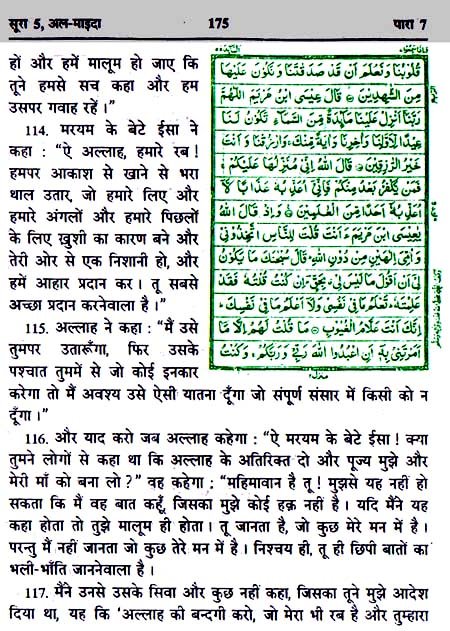 सूरा 5, अल-माइदा 175 पारा 7
हों और हमें मालूम हो जाए कि
तूने हमसे सच कहा और हम
उसपर गवाह रहें।”
114. मरयम के बेटे ईसा ने
कहा : “ऐ अल्लाह, हमारे रब!
हमपर आकाश से खाने से भरा
थाल उतार, जो हमारे लिए और
हमारे अंगलों और हमारे पिछलों
के लिए ख़ुशी का कारण बने और
तेरी ओर से एक निशानी हो, और
हमें आहार प्रदान कर। तू सबसे
अच्छा प्रदान करनेवाला है।”
115. अल्लाह ने कहा : “मैं उसे
तुमपर उतारूँगा, फिर उसके
पश्चात तुममें से जो कोई इनकार
قُلُوْبُنَا وَنَعْلَمَ اَنْ قَدْ صَدَقْتَنَا وَنَكُوْنَ عَلَيْهَا
مِنَ الشّٰهِدِيْنَ ۝ قَالَ عِيْسَى ابْنُ مَرْيَمَ اللّٰهُمَّ
رَبَّنَا اَنْزِلْ عَلَيْنَا مَآئِدَةً مِّنَ السَّمَآءِ تَكُوْنُ لَنَا
عِيْدًا لِّاَوَّلِنَا وَاٰخِرِنَا وَاٰيَةً مِّنْكَ ۚ وَارْزُقْنَا وَاَنْتَ
خَيْرُ الرّٰزِقِيْنَ ۝ قَالَ اللّٰهُ اِنِّيْ مُنَزِّلُهَا عَلَيْكُمْ ۚ
فَمَنْ يَّكْفُرْ بَعْدُ مِنْكُمْ فَاِنِّيْٓ اُعَذِّبُهٗ عَذَابًا لَّآ
اُعَذِّبُهٗٓ اَحَدًا مِّنَ الْعٰلَمِيْنَ ۝ وَاِذْ قَالَ اللّٰهُ
يٰعِيْسَى ابْنَ مَرْيَمَ ءَاَنْتَ قُلْتَ لِلنَّاسِ اتَّخِذُوْنِيْ
وَاُمِّيَ اِلٰهَيْنِ مِنْ دُوْنِ اللّٰهِ ؕ قَالَ سُبْحٰنَكَ مَا يَكُوْنُ
لِيْٓ اَنْ اَقُوْلَ مَا لَيْسَ لِيْ بِحَقٍّ ؕ اِنْ كُنْتُ قُلْتُهٗ فَقَدْ
عَلِمْتَهٗ ؕ تَعْلَمُ مَا فِيْ نَفْسِيْ وَلَآ اَعْلَمُ مَا فِيْ نَفْسِكَ ؕ
اِنَّكَ اَنْتَ عَلَّامُ الْغُيُوْبِ ۝ مَا قُلْتُ لَهُمْ اِلَّا مَآ
اَمَرْتَنِيْ بِهٖٓ اَنِ اعْبُدُوا اللّٰهَ رَبِّيْ وَرَبَّكُمْ ۚ وَكُنْتُ
करेगा तो मैं अवश्य उसे ऐसी यातना दूँगा जो संपूर्ण संसार में किसी को न
दूँगा।”
116. और याद करो जब अल्लाह कहेगा : “ऐ मरयम के बेटे ईसा! क्या
तुमने लोगों से कहा था कि अल्लाह के अतिरिक्त दो और पूज्य मुझे और
मेरी माँ को बना लो?” वह कहेगा : “महिमावान है तू! मुझसे यह नहीं हो
सकता कि मैं वह बात कहूँ, जिसका मुझे कोई हक़ नहीं है। यदि मैंने यह
कहा होता तो तुझे मालूम ही होता। तू जानता है, जो कुछ मेरे मन में है।
परन्तु मैं नहीं जानता जो कुछ तेरे मन में है। निश्चय ही, तू ही छिपी बातों का
भली-भाँति जाननेवाला है।
117. मैंने उनसे उसके सिवा और कुछ नहीं कहा, जिसका तूने मुझे आदेश
दिया था, यह कि ‘अल्लाह की बन्दगी करो, जो मेरा भी रब है और तुम्हारा